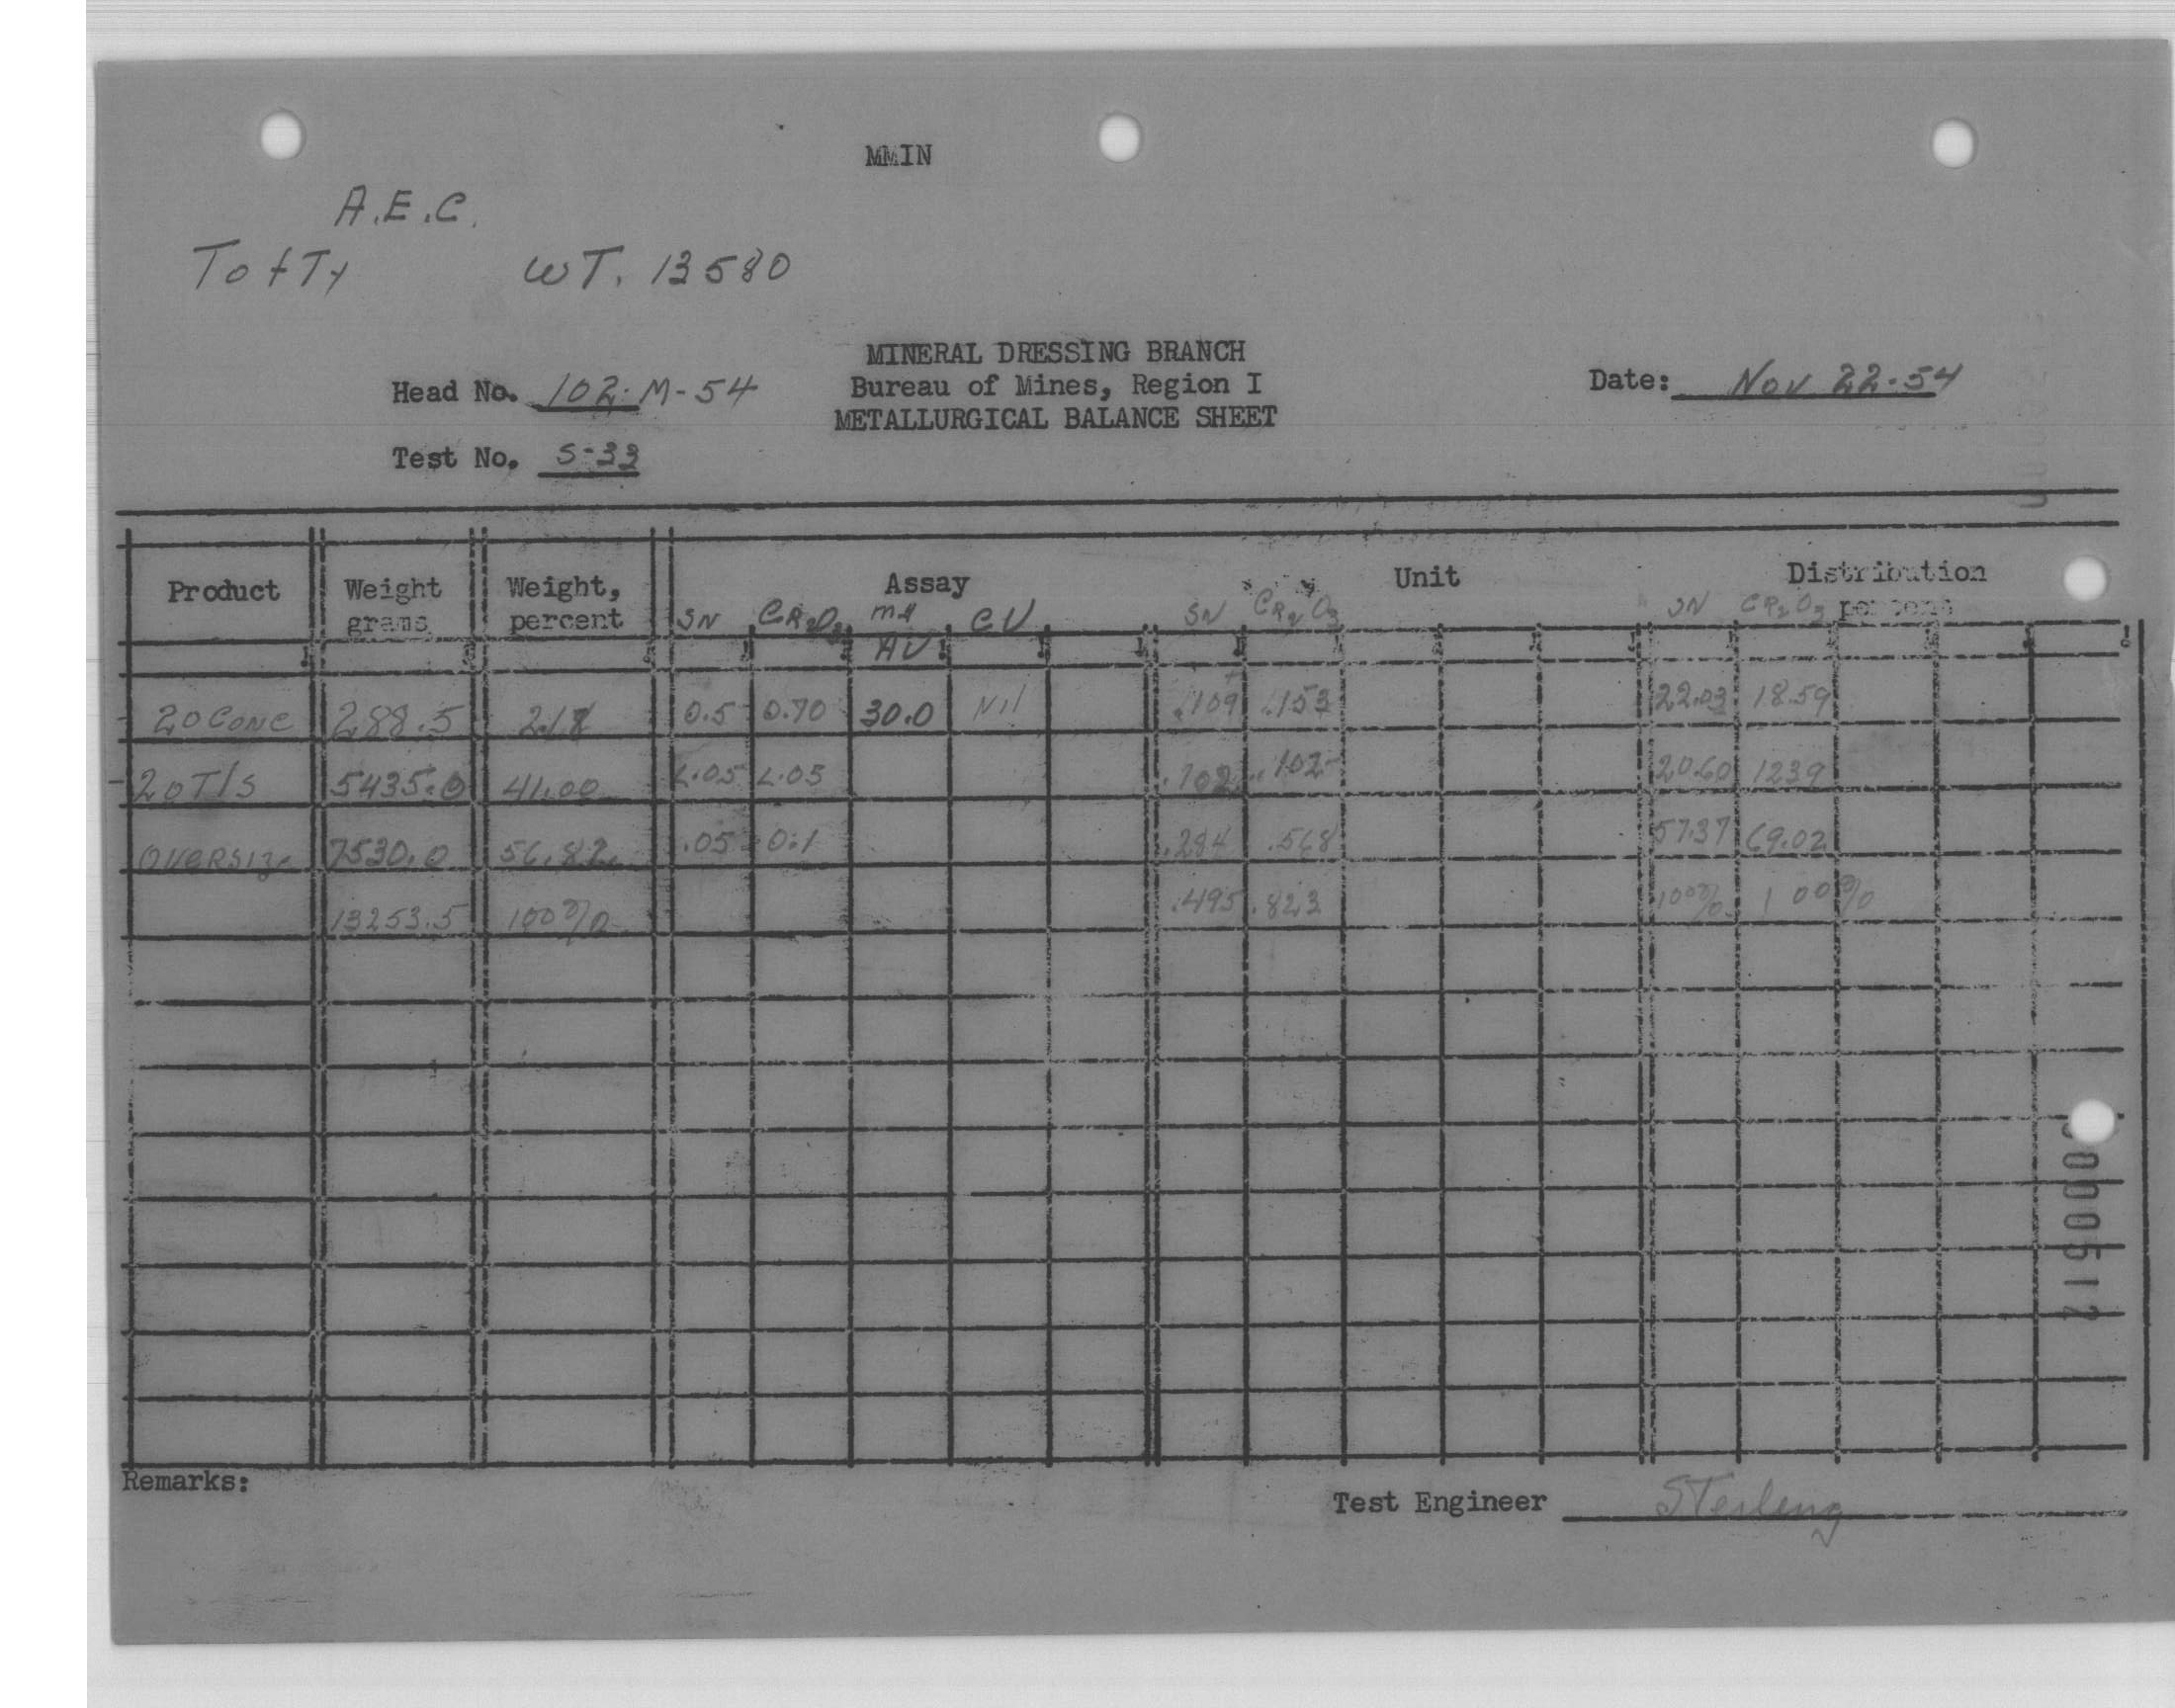 MMIN
A.E.C.
Tofty WT. 13580
MINERAL DRESSING BRANCH
Head No. 102-M-54 Bureau of Mines, Region I Date: Nov 22-54
METALLURGICAL BALANCE SHEET
Test No. S-33
Product Weight grams Weight, percent Assay Unit Distribution percent
SN CR2O3 AU CU SN CR2O3 SN CR2O3
-20 Conc 288.5 2.18 0.5 0.70 30.0 Nil .109+ .153 22.03 18.59
-20 T/S 5435.0 41.00 <.05 <.05 .102 .102- 20.60 1239
OVERSIZE 7530.0 56.82 .05 0.1 .284 .568 57.37 69.02
13253.5 100% .495 .823 100% 100%
Remarks:
Test Engineer Sterling